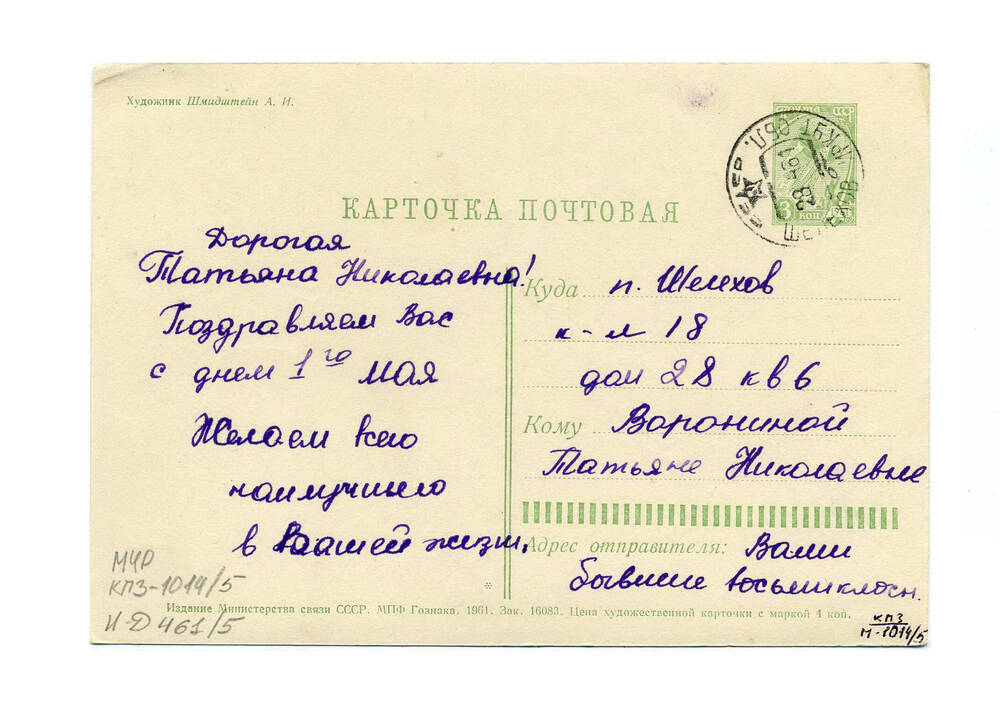 Художник Шмидштейн А. И.
ПОЧТА СССР
3 КОП
ИРКУТ. ОБЛ.
ШЕЛЕХОВ
КАРТОЧКА ПОЧТОВАЯ
Дорогая
Татьяна Николаевна!
Поздравляем Вас
с днем 1го МАЯ
Желаем всего
наилучшего
в Ваашей жизн.
Куда п. Шелехов
к-л 18
дом 28 кв 6
Кому Ворониной
Татьяне Николаевне
Адрес отправителя: Ваши
бывшие восьмикласн.
Издание Министерства связи СССР. МПФ Гознака. 1961. Зак. 16083. Цена художественной карточки с маркой 4 коп.
МЧР
КПЗ-1014/5
И-Д 461/5
КПЗ
М-1014/5